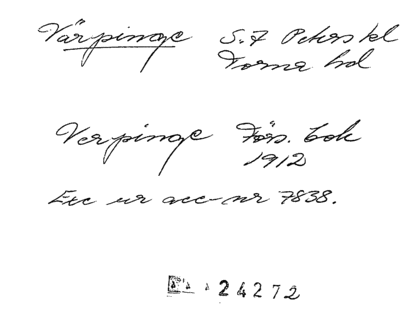 Värpinge S:t Peters kl
Torna hd
Verpinge Förs. bok
1912
Exc ur acc-nr 7838.
24272